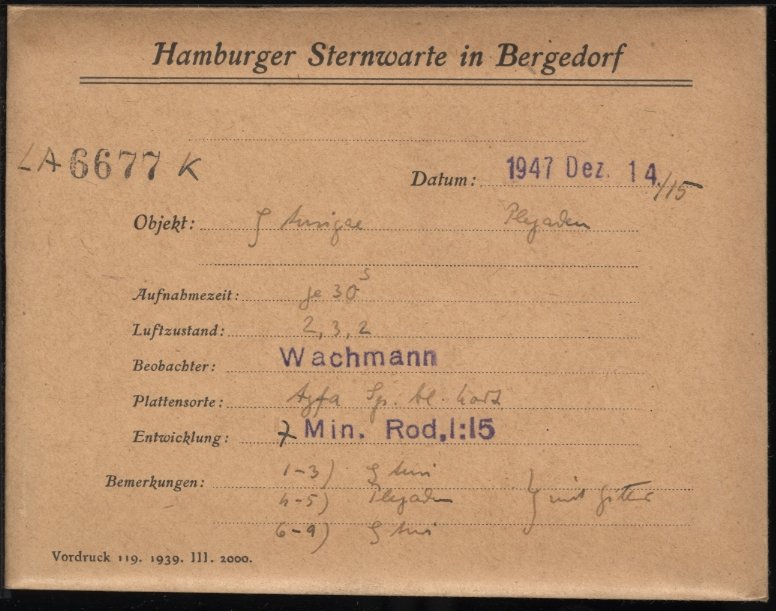 Hamburger Sternwarte in Bergedorf
LA 6677 K
Datum: 1947 Dez. 14/15
Objekt: ζ Aurigae Plejaden
Aufnahmezeit: je 30ˢ
Luftzustand: 2, 3, 2
Beobachter: Wachmann
Plattensorte: Agfa Sp. bl. hart
Entwicklung: 7 Min. Rod, 1:15
Bemerkungen: 1-3) ζ Auri
4-5) Plejaden } mit Gitter
6-9) ζ Auri
Vordruck 119. 1939. III. 2000.